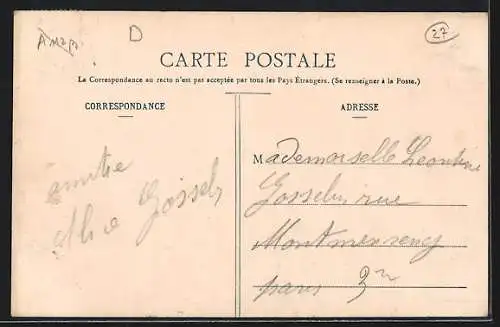 D
27
CARTE POSTALE
La Correspondance au recto n'est pas acceptée par tous les Pays Étrangers. (Se renseigner à la Poste.)
CORRESPONDANCE
ADRESSE
amitie
Alice Gosselin
Mademoiselle Leontine
Gosselin rue
Montmorency
paris 3